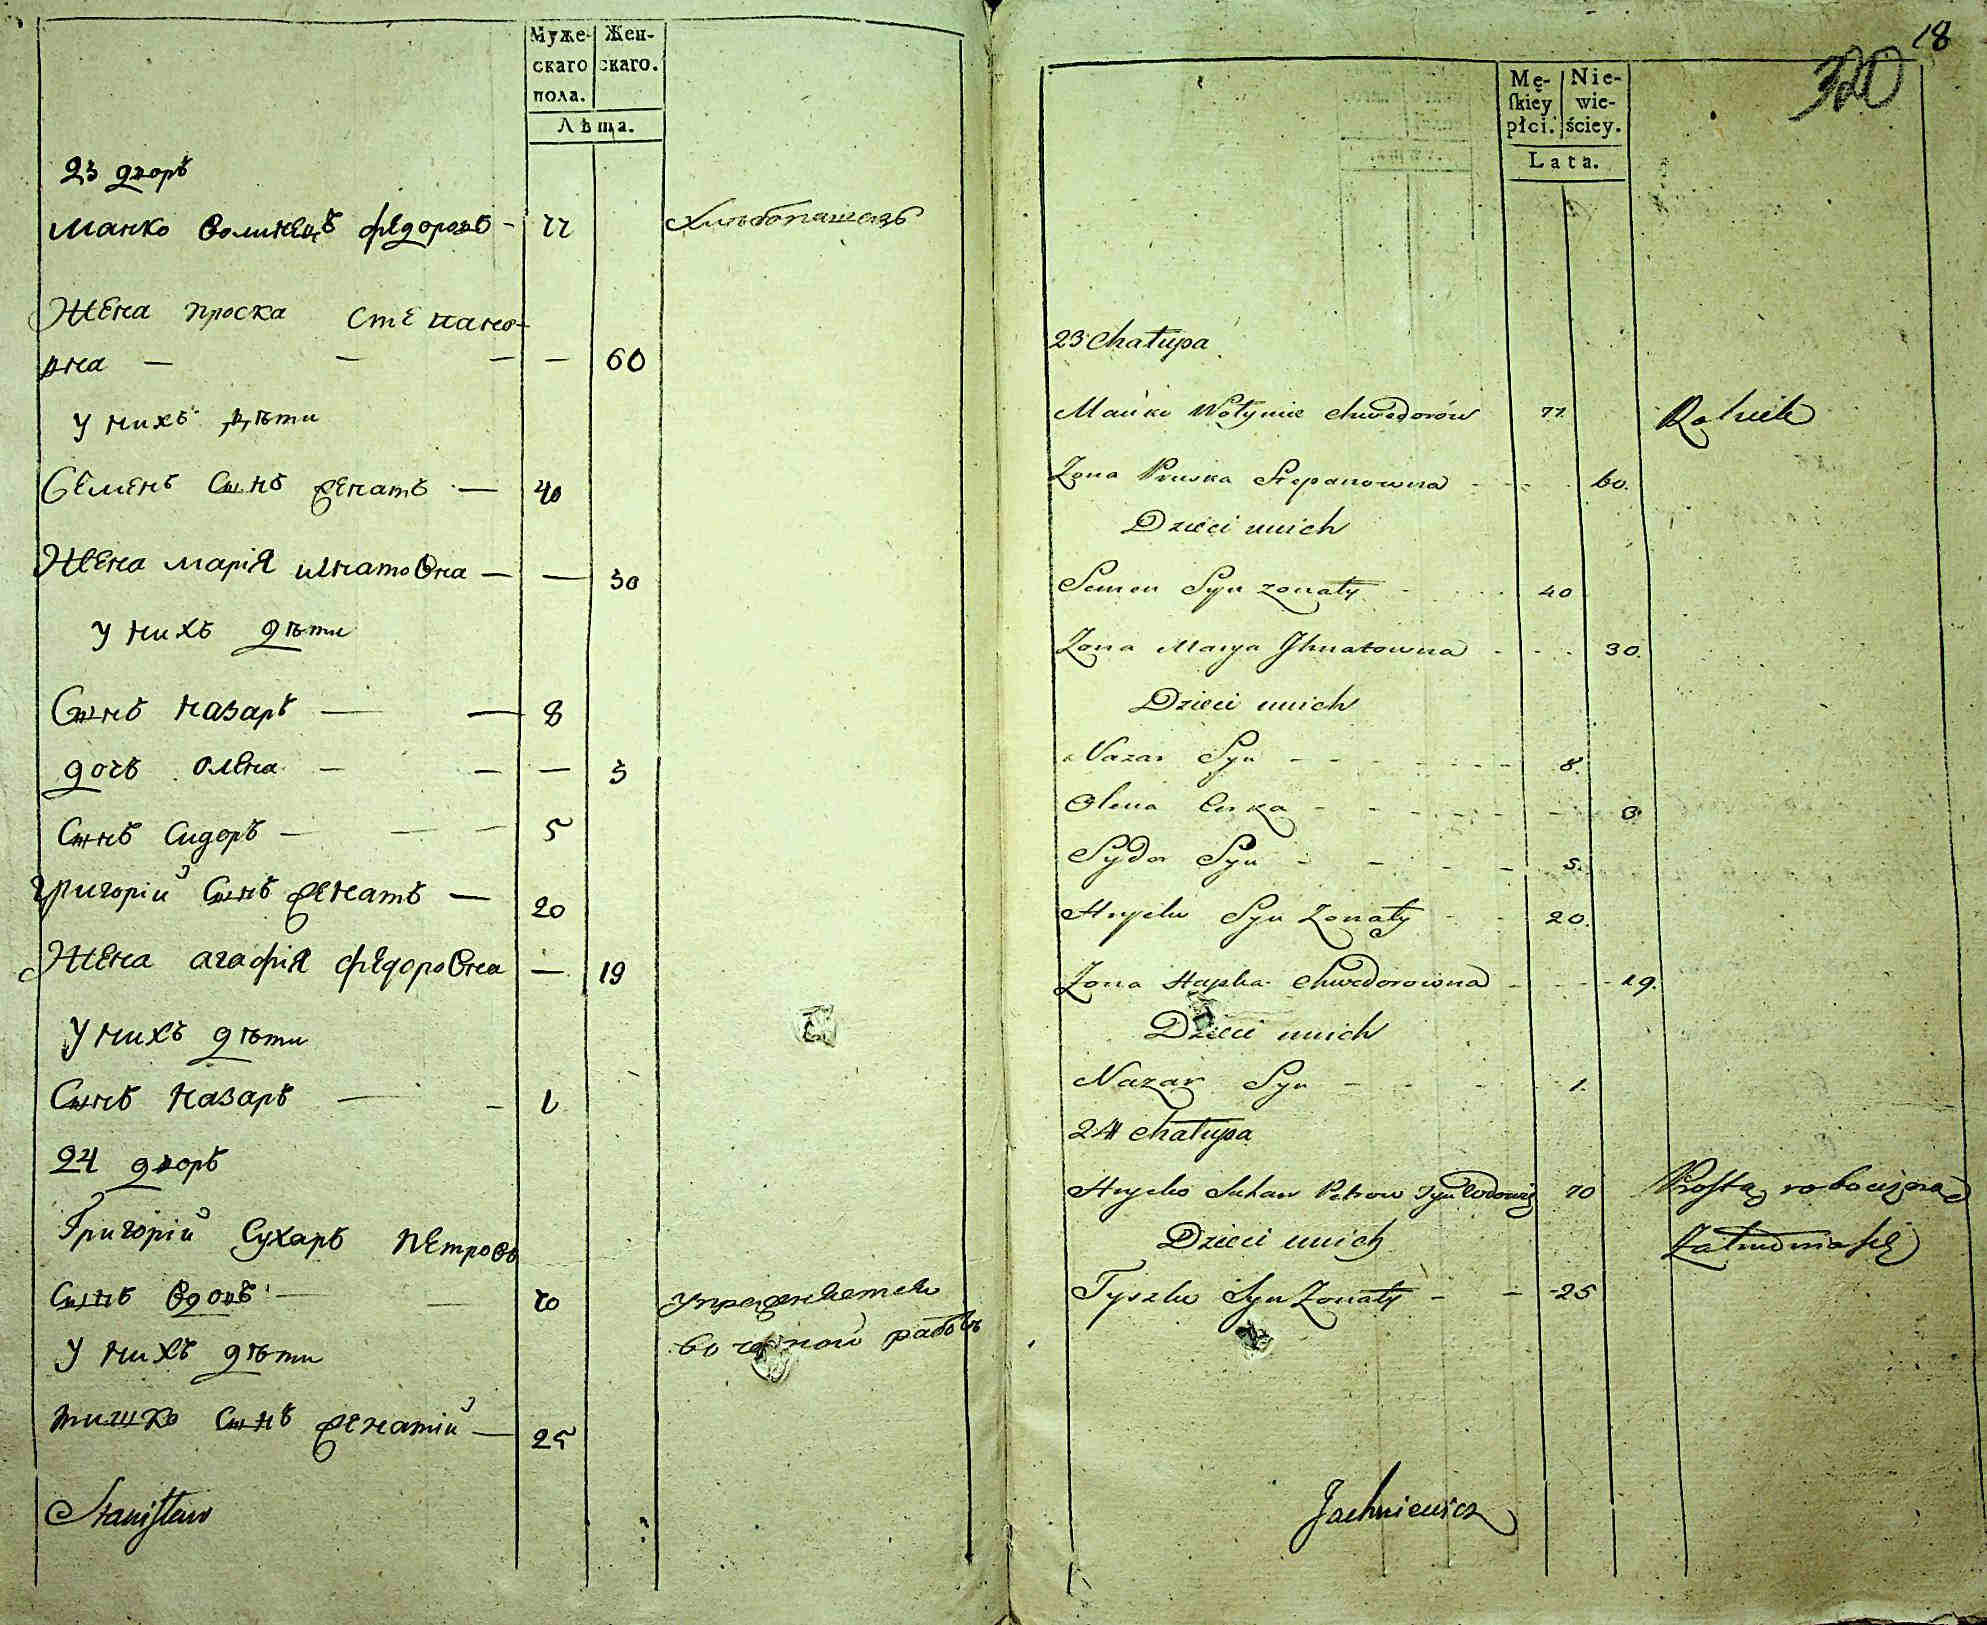 Муже- Жен-
скаго скаго.
пола.
Лѣта.
23 дворъ
Манко Волинецъ Федоровъ - 77 Хлѣбопашецъ
Жена Проска Степано-
вна — — — — 60
У нихъ дѣти
Семенъ Сынъ женатъ — 40
Жена Марія Игнатовна — — 30
У нихъ дѣти
Сынъ Назаръ — — 8
дочъ Олена — — — 3
Сынъ Сидоръ — — — 5
Григорій Сынъ женатъ — 20
Жена Агафія Федоровна — 19
У нихъ дѣти
Сынъ Назаръ — - 1
24 дворъ
Григорій Сухаръ Петровъ
Сынъ вдовъ — — 70 упражняется
во чорной работѣ
У нихъ дѣти
Тишко Сынъ женатій — 25
Stanisław
18
320
Mę- Nie-
skiey wie-
płci. ściey.
Lata.
23 Chałupa
Mańko Wołyniec Chwedorów 77 Rolnik
Zona Pruska Stepanowna - - - 60.
Dzieci unich
Semen Syn zonaty - - 40
Zona Marya Ihnatowna - - - 30.
Dzieci unich
Nazar Syn - - - - - - 8.
Olena Curka - - - - - - 3.
Sydor Syn - - - - 5.
Hryćko Syn Zonaty - - 20.
Zona Hapka Chwedorowna - - - 19.
Dzieci unich
Nazar Syn - - - 1.
24 Chałupa
Hryćko Suhar Petrow Syn Wdowiec 70 Prostą robocizną
Dzieci unich Zatrudnia się
Tyszko Syn Zonaty - - 25
Jachniewicz